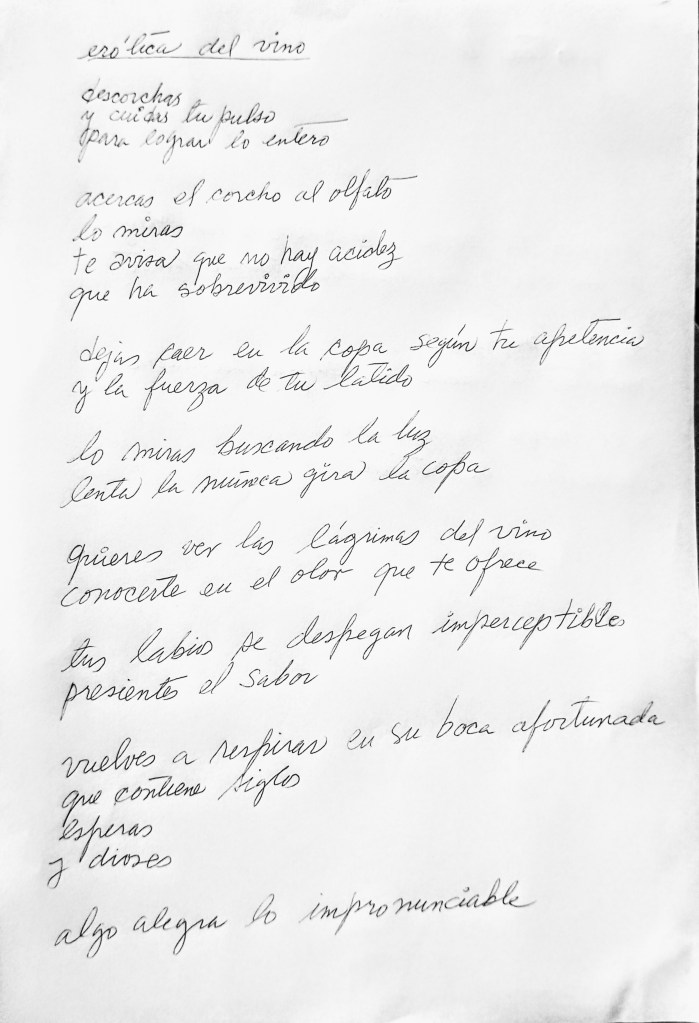 erótica del vino
descorchas
y cuidas tu pulso
para lograr lo entero
acercas el corcho al olfato
lo miras
te avisa que no hay acidez
que ha sobrevivido
dejas caer en la copa según tu apetencia
y la fuerza de tu latido
lo miras buscando la luz
lenta la muñeca gira la copa
quieres ver las lágrimas del vino
conocerte en el olor que te ofrece
tus labios se despegan imperceptibles
presientes el sabor
vuelves a respirar en su boca afortunada
que contiene siglos
esperas
y dioses
algo alegra lo impronunciable